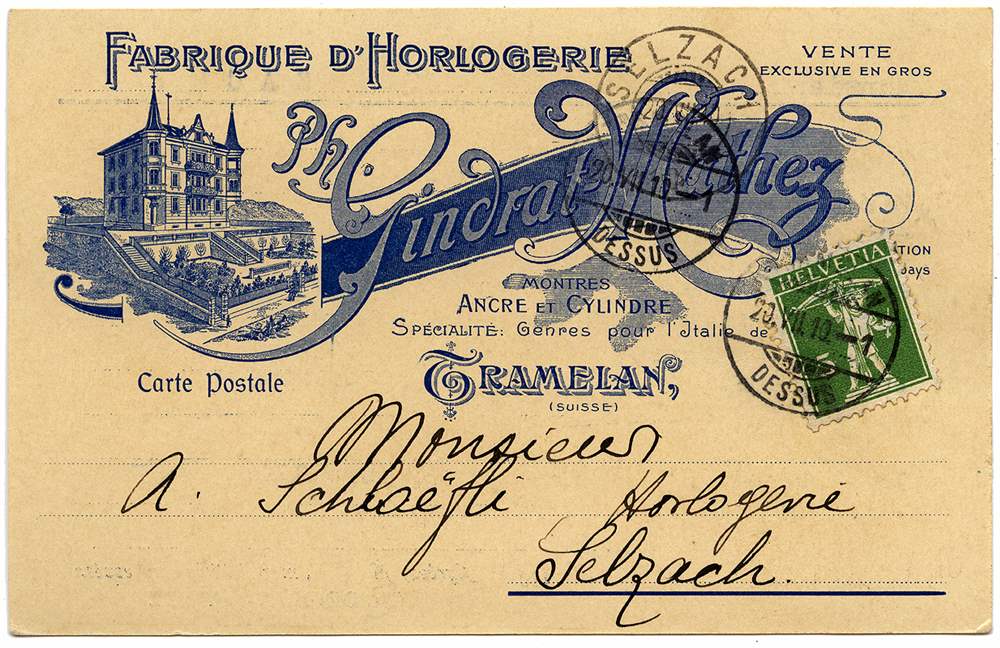 FABRIQUE D'HORLOGERIE
VENTE
EXCLUSIVE EN GROS
Ph. Gindrat-Mathez
MONTRES
ANCRE ET CYLINDRE
SPÉCIALITÉ: Genres pour l'Italie de
TRAMELAN,
(SUISSE)
Carte Postale
SELZACH
20.VII.10-1
DESSUS
HELVETIA
5
20.VII.10-1
DESSUS
Monsieur
A. Schlaëfli Horlogerie
Selzach.